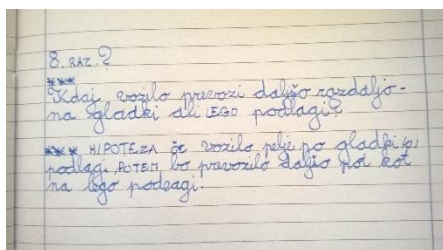 8. RAZ. ?
***
Kdaj vozilo prevozi daljšo razdaljo -
na gladki ali LEGO podlagi?
*** HIPOTEZA če vozilo pelje po gladki
podlagi, POTEM bo prevozilo daljšo pot kot
na lego podlagi.